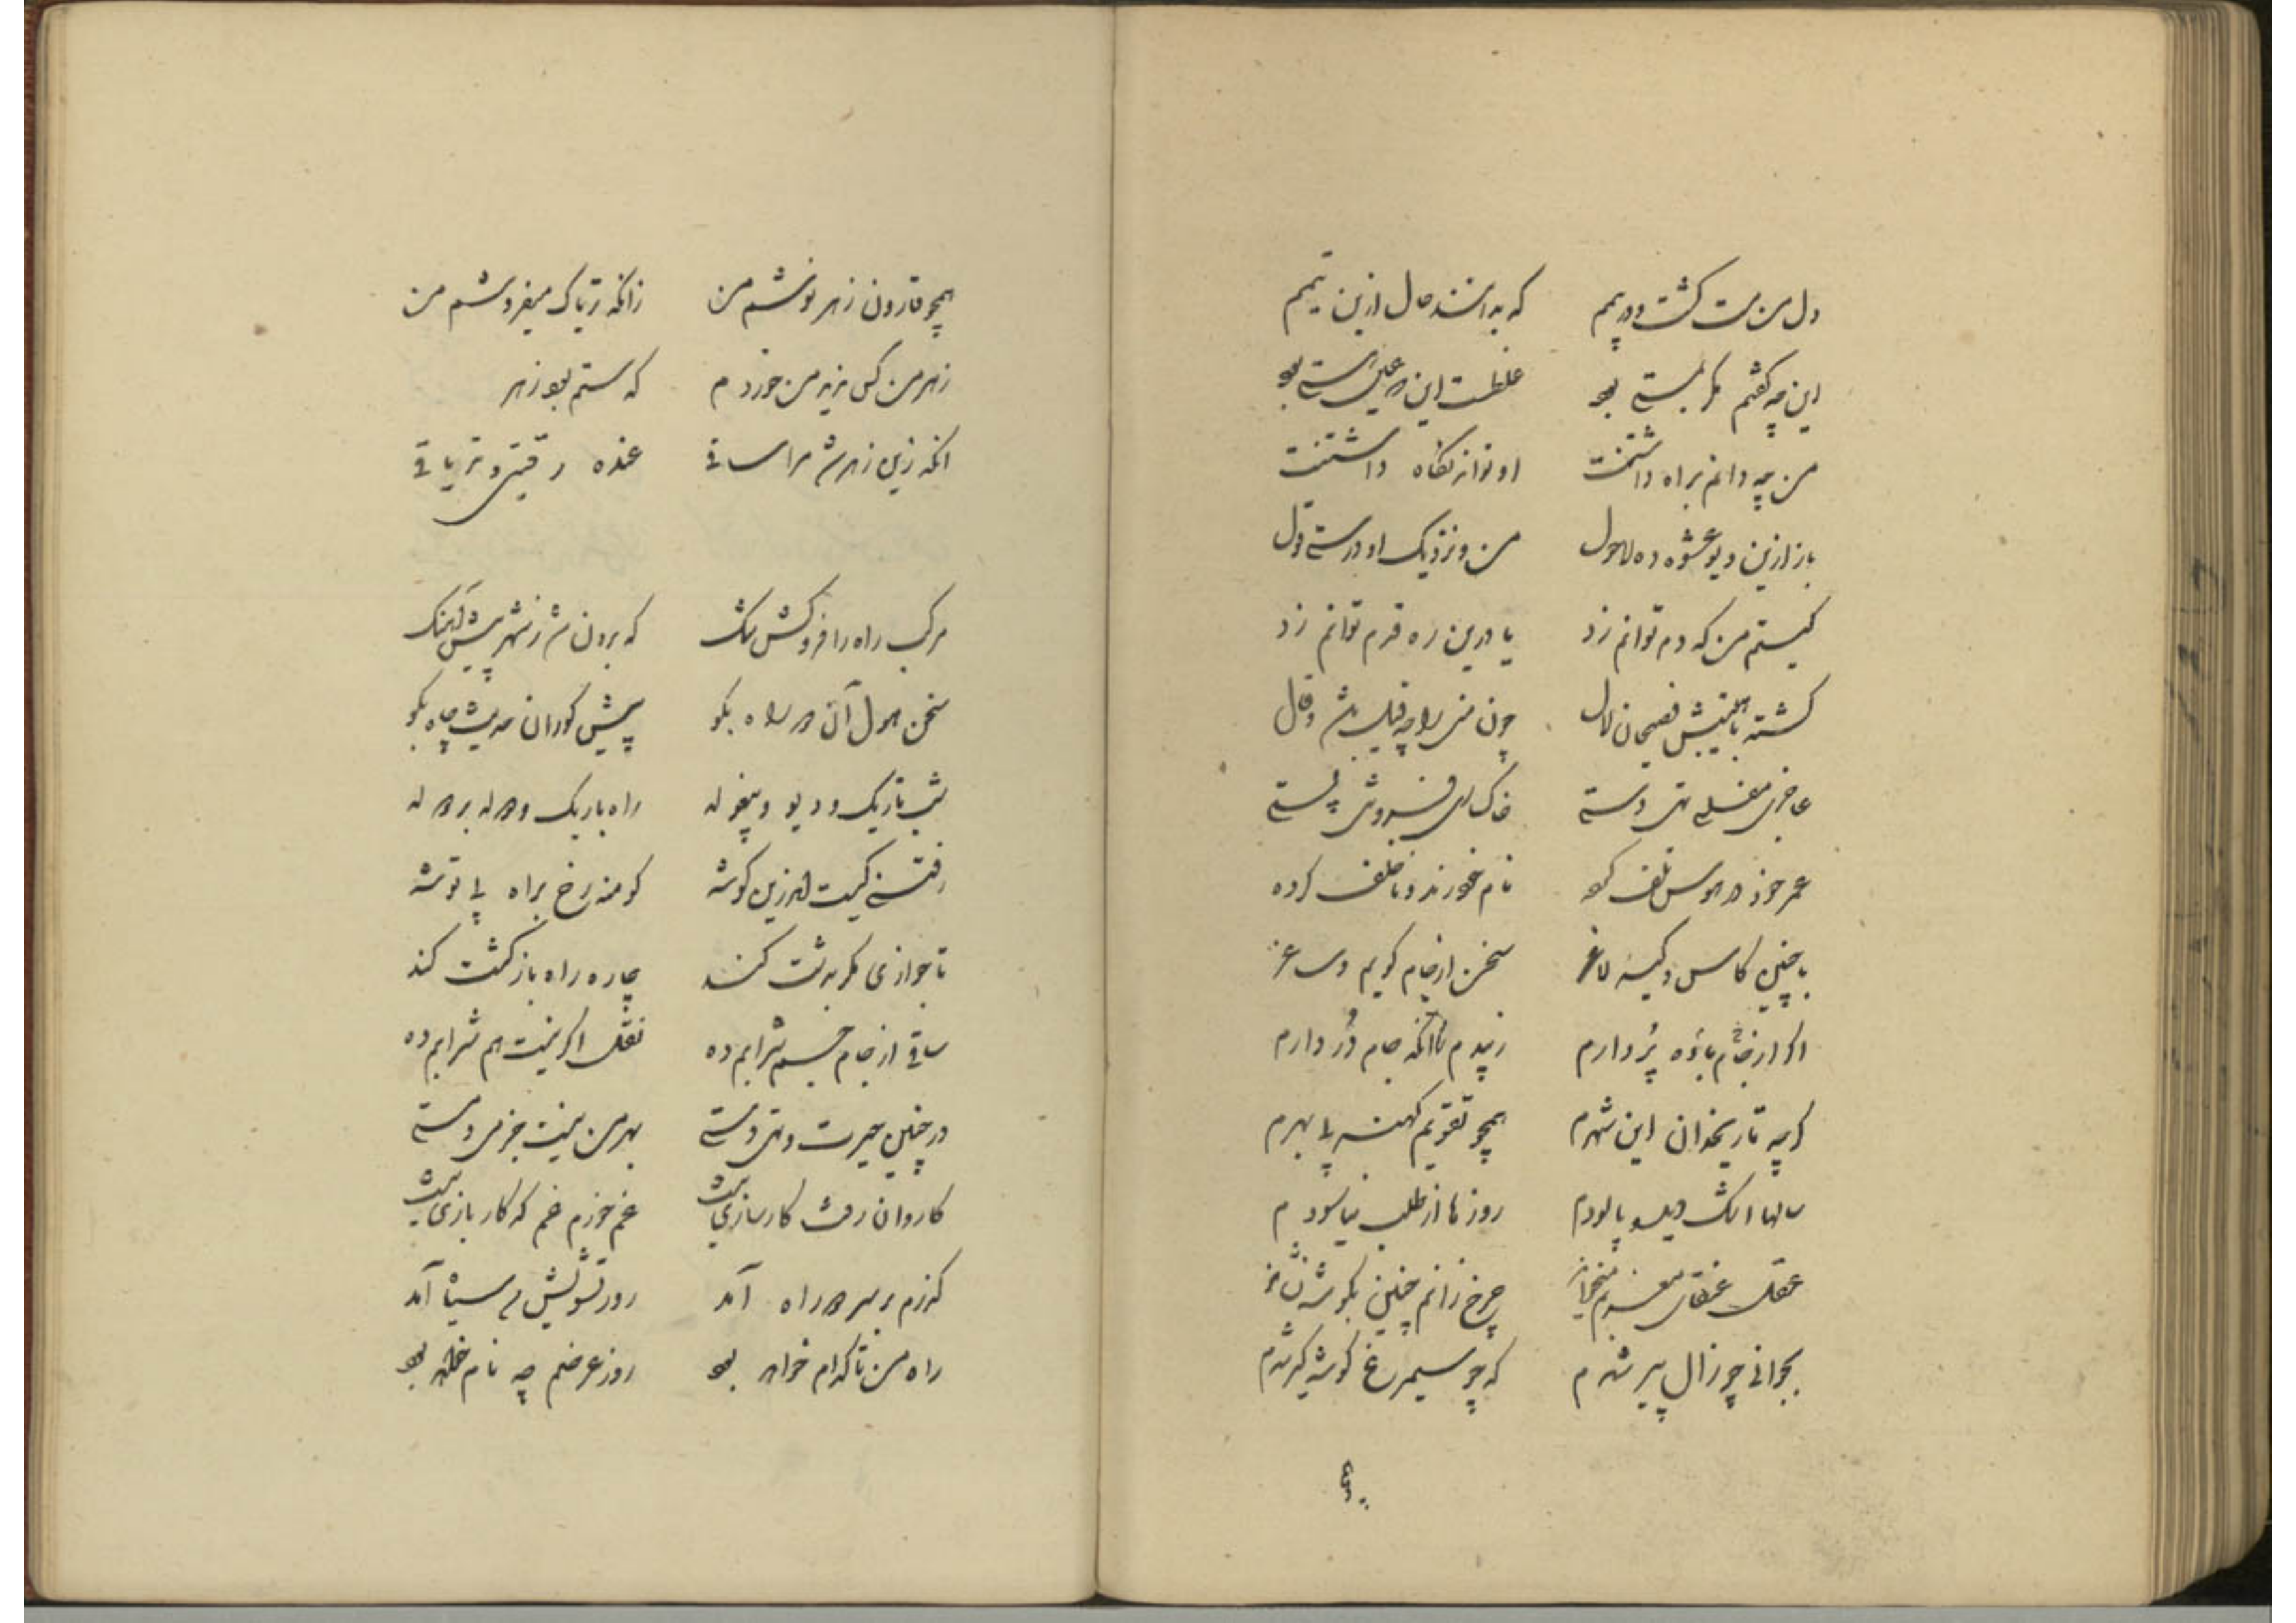 دل من مست کشت و در یم که بدانند حال ازین یتیم
این چه کفتم مکر بستی بود غلطست این چه عین هستی بود
من چه دانم براه داشتنت او تواند نکاه داشتنت
باز ازین دیو عشوه ده لاحول من و نزدیک او درستی قول
کیستم من که دم توانم زد یا درین ره قدم توانم زد
کشته فصیحان لال چون منی را چه قیل باشد و قال
عاجزی مفلسی تهی دستی خاک پستی
عمر خود در هوس تلف کرده نام خود ناخلف کرده
با چنین کاس و کیسه لاغر سخن از جام کویم و ساغر
اکر از خم باده پر دارم نه بدم زانکه جام در دارم
کر چه تاریخدان این شهرم همچو تقویم کهنه بی بهرم
سالها اشک دیده پالودم روزها از طلب نیاسودم
عقل عنقای مغربم میخواند چرخ زانم چنین بکوشه نشاند
بجوانی چو زال پیر شدم که چو سیمرغ کوشه کیر شدم
همچو قارون زهر نوشم من زانکه تریاک میفروشم من
زهر من کس من خوردم که ستم بود زهر
انکه زین زهر شد مرا ساقی عنده رقیتی و تریاقی
مرکب راه را فروکش تنک که برون شد ز شهر پیش آهنک
سخن هول آن در راه بکو پیش کوران حدیث چاه بکو
شب تاریک و دیو و بیغوله راه باریک و
رفتنی کیست زین کوشه کو منه رخ براه بی توشه
تا جوازی مکر بدست کند چاره راه بازکشت کند
ساقی از جام جسم شرابم ده نقل اکر نیست هم شرابم ده
در چنین حیرت و تهی دستی بهر من نیست جز می و مستی
کاروان رفت کارسازی نیست غم خورم غم که کار بازی نیست
کذرم بر سر در راه آمد روز تشویش سیاه آمد
راه من تا کدام خواهد بود روز عرضم چه نام خواهد بود